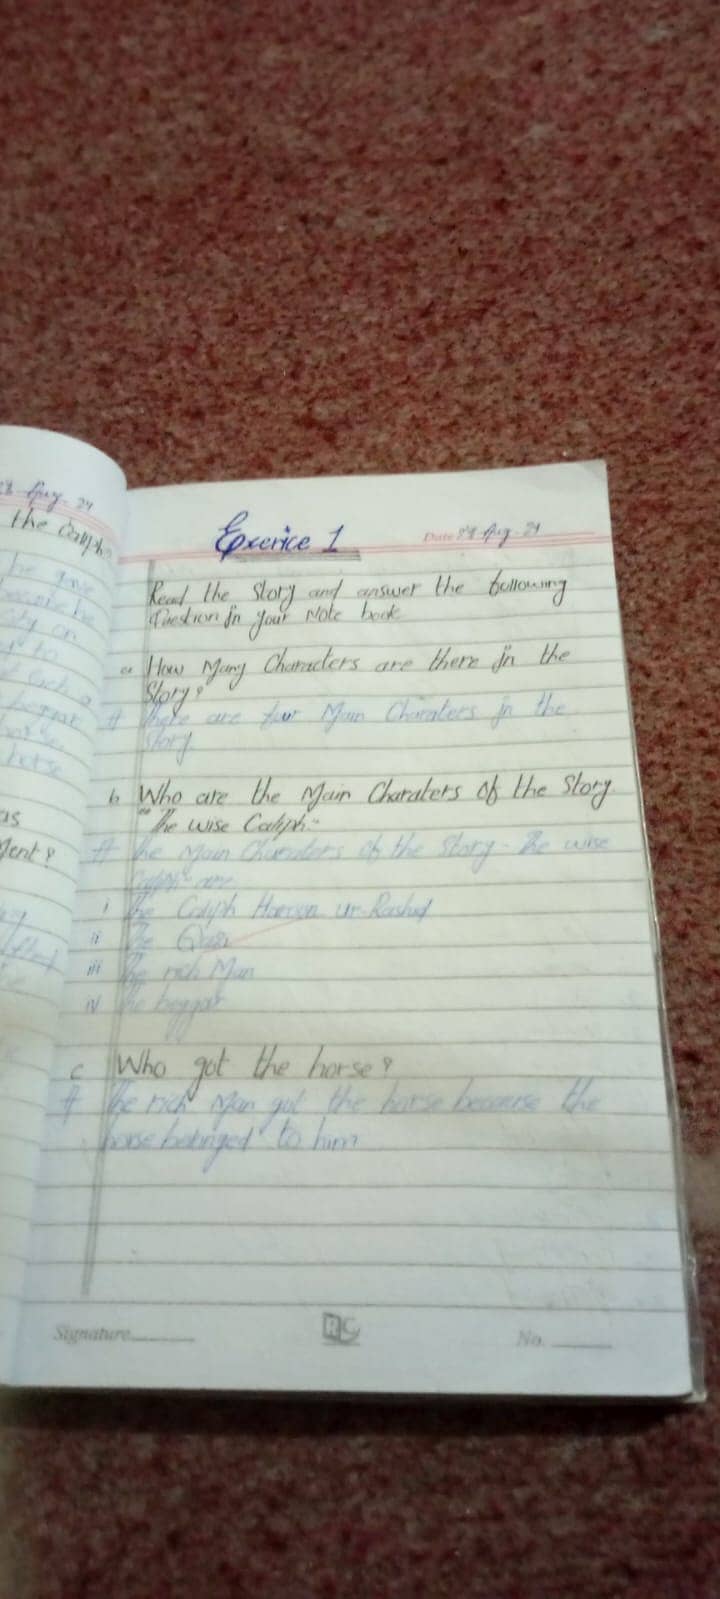 28 Aug-24
the Caliph?
he gave
Exerice 1
Date 29 Aug-24
Read the Story and answer the following
Question in your Note book
a How Many Characters are there in the
Story?
A There are four Main Charaters in the
story.
b Who are the Main Charaters of the Story
"The wise Caliph."
A The Main Charaters of the Story - The wise
Caliph" are.
i The Caliph Haroon ur-Rashid
ii The Qazi
iii The rich Man
iv The beggar
c Who got the horse?
A The rich Man got the horse because the
horse belonged to him
beggar
horse
Signature
RC
No.